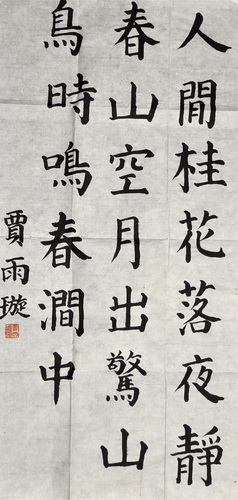 人閒桂花落夜靜
春山空月出驚山
鳥時鳴春澗中
賈雨璇